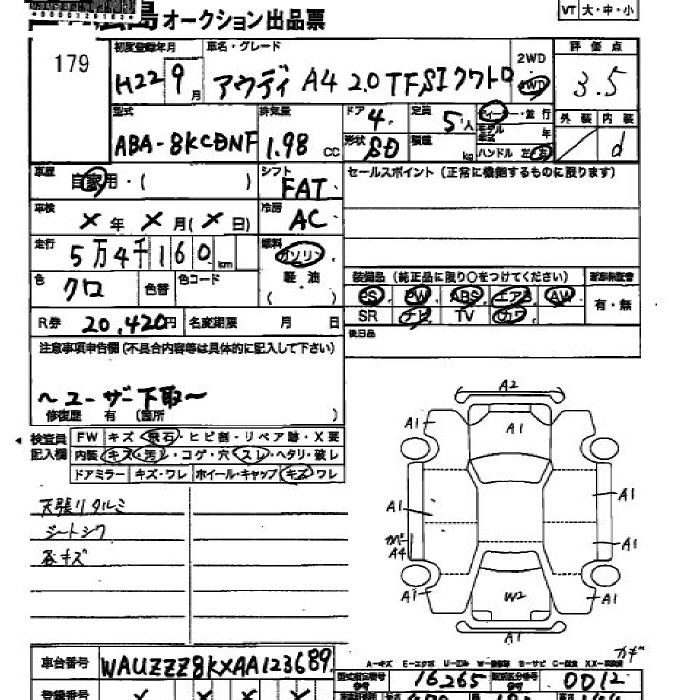 広島オークション出品票
VT 大・中・小
179
初度登録年月
車名・グレード
H22 9月
アウディ A4 2.0 TFSIクワトロ
2WD
4WD
評価点
3.5
型式
排気量
ドア
定員
ABA-8KCDNF
1.98 cc
4
5人
形状
SD
積載
kg
ディーラー・並行
モデル年式 年
ハンドル 左 右
外装 内装
d
車歴
自家用・( )
シフト
FAT
セールスポイント(正常に機能するものに限ります)
車検
X年 X月(X日)
冷房
AC
走行
5万4千160km
燃料
ガソリン
軽油
( )
色
クロ
色替
色コード
装備品(純正品に限り○をつけてください)
PS PW ABS エアB AW
SR ナビ TV カワ
有・無
R券
20,420円
名変期限 月 日
後日品
注意事項申告欄(不具合内容等は具体的に記入して下さい)
~ユーザー下取~
修復歴 有 (箇所 )
検査員記入欄
FW キズ・飛石・ヒビ割・リペア跡・X要
内装 キズ・汚レ・コゲ・穴・スレ・ヘタリ・破レ
ドアミラー キズ・ワレ ホイール・キャップ キズ・ワレ
天張リタルミ
シートシワ
各キズ
A2
A1
A1
A1
A1
A1
A1
A1
A4
A1
W2
A1
A1
カギ
車台番号
WAUZZZ8KXAA123689
A-キズ
型式指定番号
16265
類別区分番号
0012
登録番号